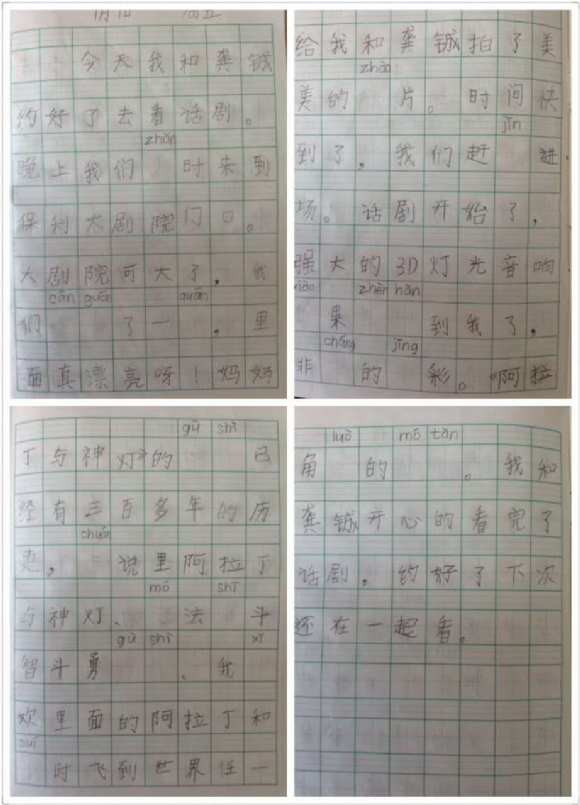 今天我和龚铖
约好了去看话剧。
zhǔn
晚上我们 时来到
保利大剧院门口。
大剧院可大了，我
cān guān guān
们 了一 。里
面真漂亮呀！妈妈
给我和龚铖拍了美
zhào
美的 片。时间快
jǐn
到了，我们赶 进
场。话剧开始了，
强大的3D灯光音响
xiào zhèn hàn
果 到我了。
cháng jīng
非 的 彩。《阿拉
gù shì
丁与神灯》的 已
经有三百多年的历
chuán
史。 说里阿拉丁
mó shī
与神灯、 法 斗
gù shì xǐ
智斗勇 ，我
欢里面的阿拉丁和
suí
时飞到世界任一
luò mó tǎn
角 的 。我和
龚铖开心的看完了
话剧，约好了下次
还在一起看。